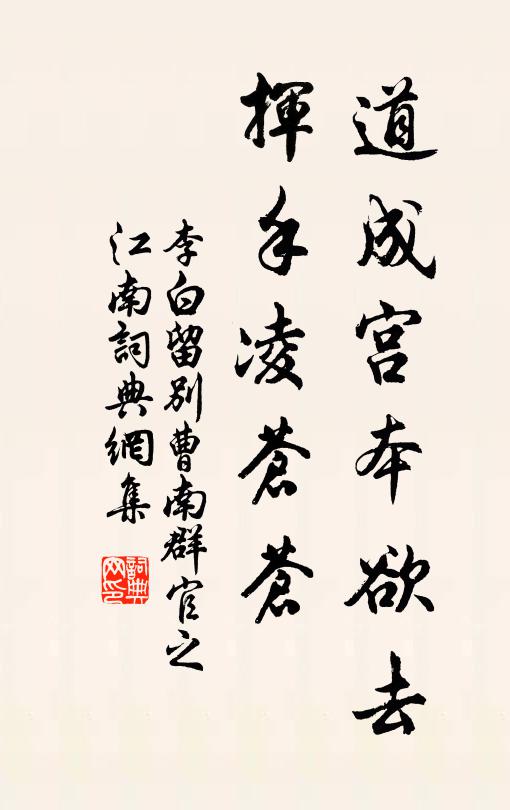 道成宫本欲去
揮手凌蒼蒼
李白留別曹南群官之
江南詞典網集
詞典
网印